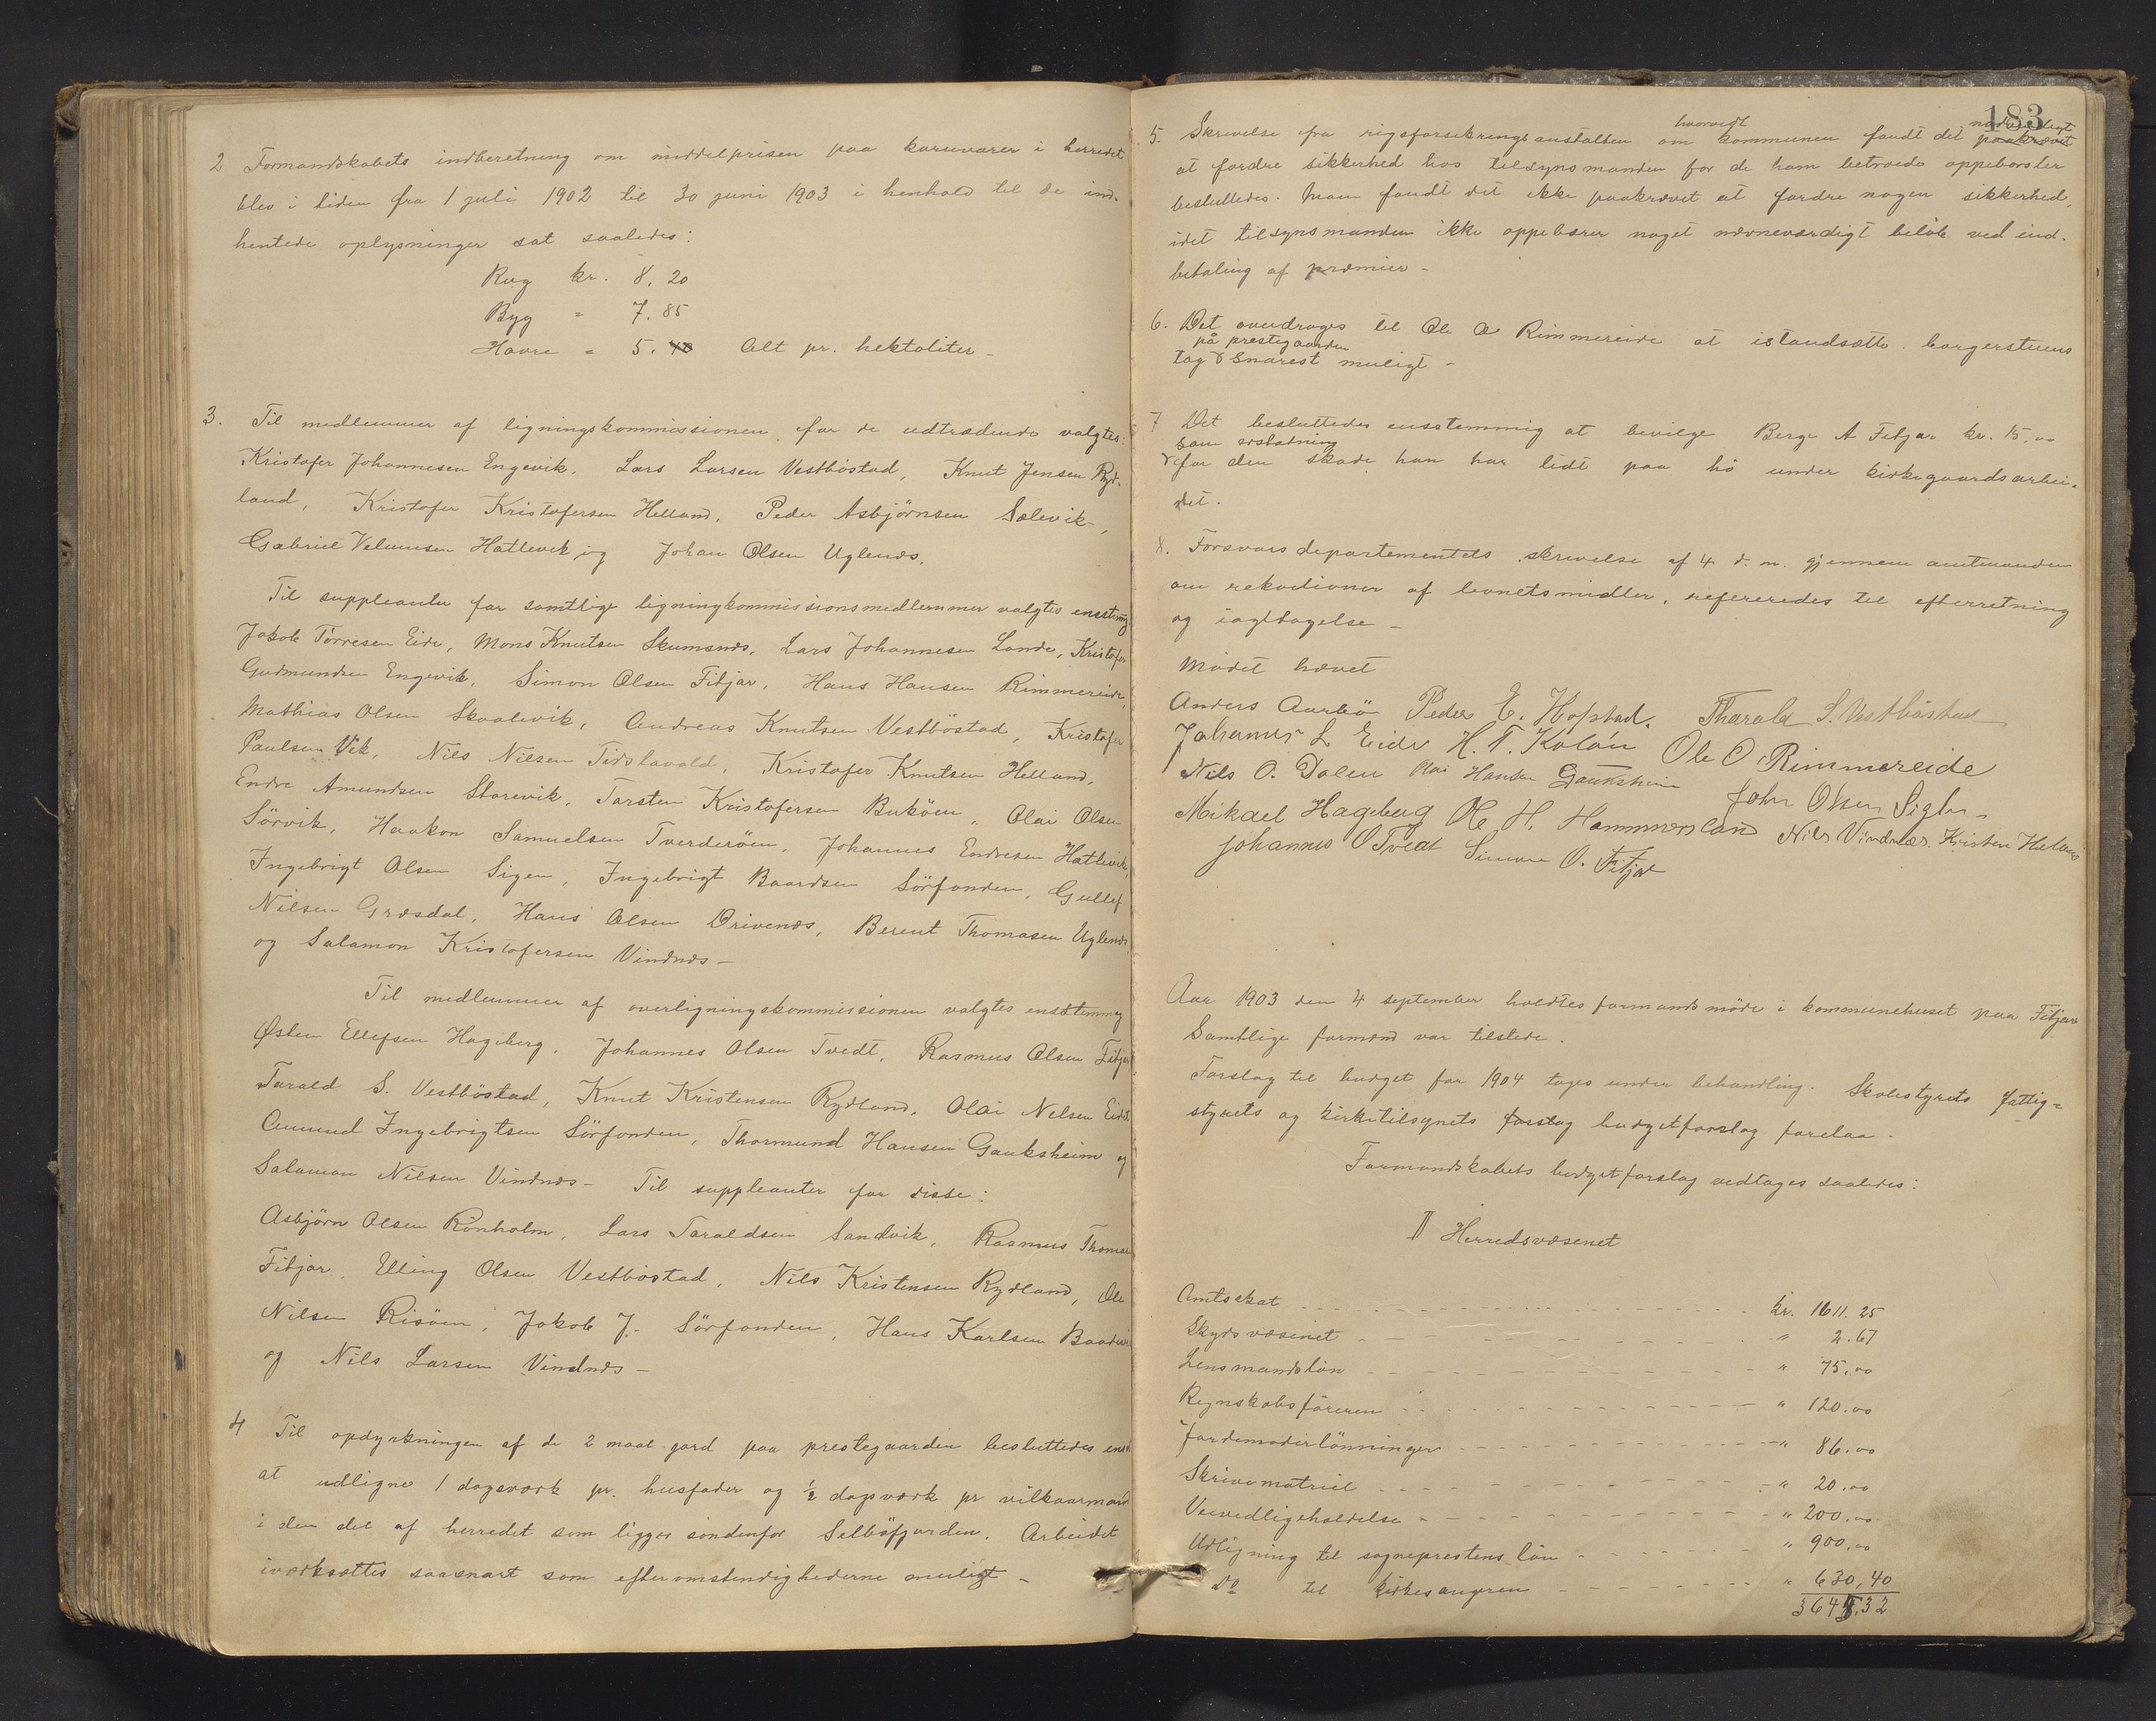 2 Formandskabets indberetning om middelprisen paa kornvarer i herredet
blev i tiden fra 1 juli 1902 til 30 juni 1903 i henhold til de ind-
hentede oplysninger sat saaledes:
Rug kr. 8,20
Byg " 7.85
Havre " 5.40 Alt pr. hektoliter -
3. Til medlemmer af ligningskommissionen for de udtrædende valgtes:
Kristofer Johannesen Engevik, Lars Larsen Vestböstad, Knut Jensen Ryd-
land, Kristofer Kristofersen Helland, Peder Asbjörnsen Sælevik,
Gabriel Velumsen Hatlevik og Johan Olsen Uglenæs.
Til suppleanter for samtlige ligningkommissionsmedlemmer valgtes enstemig
Jakob Törresen Eide, Mons Knutsen Skumsnes, Lars Johannesen Lande, Kristofer
Gudmundsen Engevik, Simon Olsen Fitjar, Hans Hansen Rimmereide,
Mathias Olsen Skaalevik, Andreas Knutsen Vestböstad, Kristofer
Paulsen Vik, Nils Nilsen Tislavold, Kristofer Knutsen Helland,
Endre Amundsen Storevik, Torsten Kristofersen Buköen, Olai Olsen
Sörvik, Haakon Samuelsen Tverderöen, Johannes Endresen Hatlevik,
Ingebrigt Olsen Sigen, Ingebrigt Baardsen Sörfonden, Gullef
Nilsen Græsdal, Hans Olsen Drivenæs, Berent Thomasen Uglenæs
og Salamon Kristofersen Vindnæs -
Til medlemmer af overligningskommissionen valgtes enstemmig
Østen Ellefsen Hageberg, Johannes Olsen Tvedt, Rasmus Olsen Fitjar
Tarald S. Vestböstad, Knut Kristensen Rydland, Olai Nelsen Eide
Amund Ingebrigtsen Sörfonden, Thormund Hansen Gauksheim og
Salamon Nilsen Vindnæs - Til suppleanter for disse:
Asbjörn Olsen Rönholm, Lars Taraldsen Sandvik, Rasmus Thomasen
Fitjar, Elling Olsen Vestböstad, Nils Kristensen Rydland, Ole
Nilsen Risöen, Jakob J. Sörfonden, Hans Karlsen
og Nils Larsen Vindnæs -
4 Til opdyrkningen af de 2 maal jord paa prestegaarden besluttedes
at udligne 1 dagsværk pr. husfader og ½ dagsværk pr vilkaarmand
i den del af herredet som ligger söndenfor Selböfjorden. Arbeidet
iværksættes saasnart som efter omstendighederne muligt -
183
5. Skrivelse fra rigsforsikringsanstalten om hvorvidt kommunen fandt det paakrævet nödvendigt
at fordre sikkerhed hos tilsynsmanden for de ham betroede oppebörsler
besluttedes. Man fandt det ikke paakrævet at fordre nogen sikkerhed,
idet tilsynsmanden ikke oppebærer noget nævneværdigt belöb ved ind-
betaling af præmier -
6. Det overdrages til Ole O Rimmereide at istandsætte borgerstuens
på prestegaarden
tag snarest muligt -
7 Det besluttedes enstemmig at bevilge Berge A Fitjar kr. 15,00
som erstatning
for den skade han har lidt paa hö under kirkegaardsarbei-
det.
8. Forsvarsdepartementets skrivelse af 4 d. m. gjennem amtmanden
om rekvisitioner af levnetsmidler, refereredes til efterretning
og iagttagelse -
Mödet hævet
Anders Aarbö Peder E. Hopstad. Tharald S. Vestböstad
Johannes L Eide H. T. Koløen Ole O. Rimmereide
Nils O. Dalen Olai Hansen Gauksheim John Olsen Siglen
Mikael Hageberg Ole H. Hammersland Nils Vindnæs. Kristen Helland
Johannes O Tvedt Simon O. Fitjar
Aar 1903 den 4 september holdtes formandsmöde i kommunehuset paa Fitjar
Samtlige formænd var tilstede.
Forslag til budget for 1904 toges under behandling. Skolestyrets fattig=
styrets og kirketilsynets forslag budgetforslag forelaa.
Formandskabets budgetforslag vedtages saaledes:
I Herredsvæsenet
Amtsskat kr. 1611.25
Skydsvæsenet " 2.67
Lensmandslön " 75,00
Regnskabsföreren " 120.00
Jordemoderlönninger " 86.00
Skrivematriel " 20.00
Veivedligeholdelse " 200,00
Udligning til sogneprestens lön " 900,00
Do til kirkesangeren " 630,40
3645,32